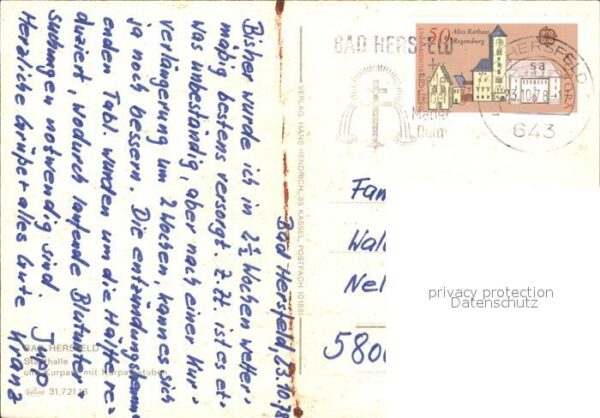 Bad Hersfeld 23.10.78
Bisher wurde ich in 2½ Wochen wetter-
mäßig bestens versorgt. Z. Zt. ist es et-
was unbeständig, aber nach einer Kur-
verlängerung um 2 Wochen, kann es sich
ja noch bessern. Die entzündungshemm-
enden Tabl. wurden um die Hälfte re-
duziert, wodurch laufende Blutunter-
suchungen notwendig sind.
Herzliche Grüße + alles Gute
BAD HERSFELD
Stadthalle
und Kurpark mit Kurparkstuben
31.721.18
VERLAG HANS HENDRICH, 35 KASSEL, POSTFACH 101651
BAD HERSFELD
50
Altes Rathaus
Regensburg
HERSFELD
sa
23.10.78
643
Fam
Wal
Nel
580
privacy protection
Datenschutz